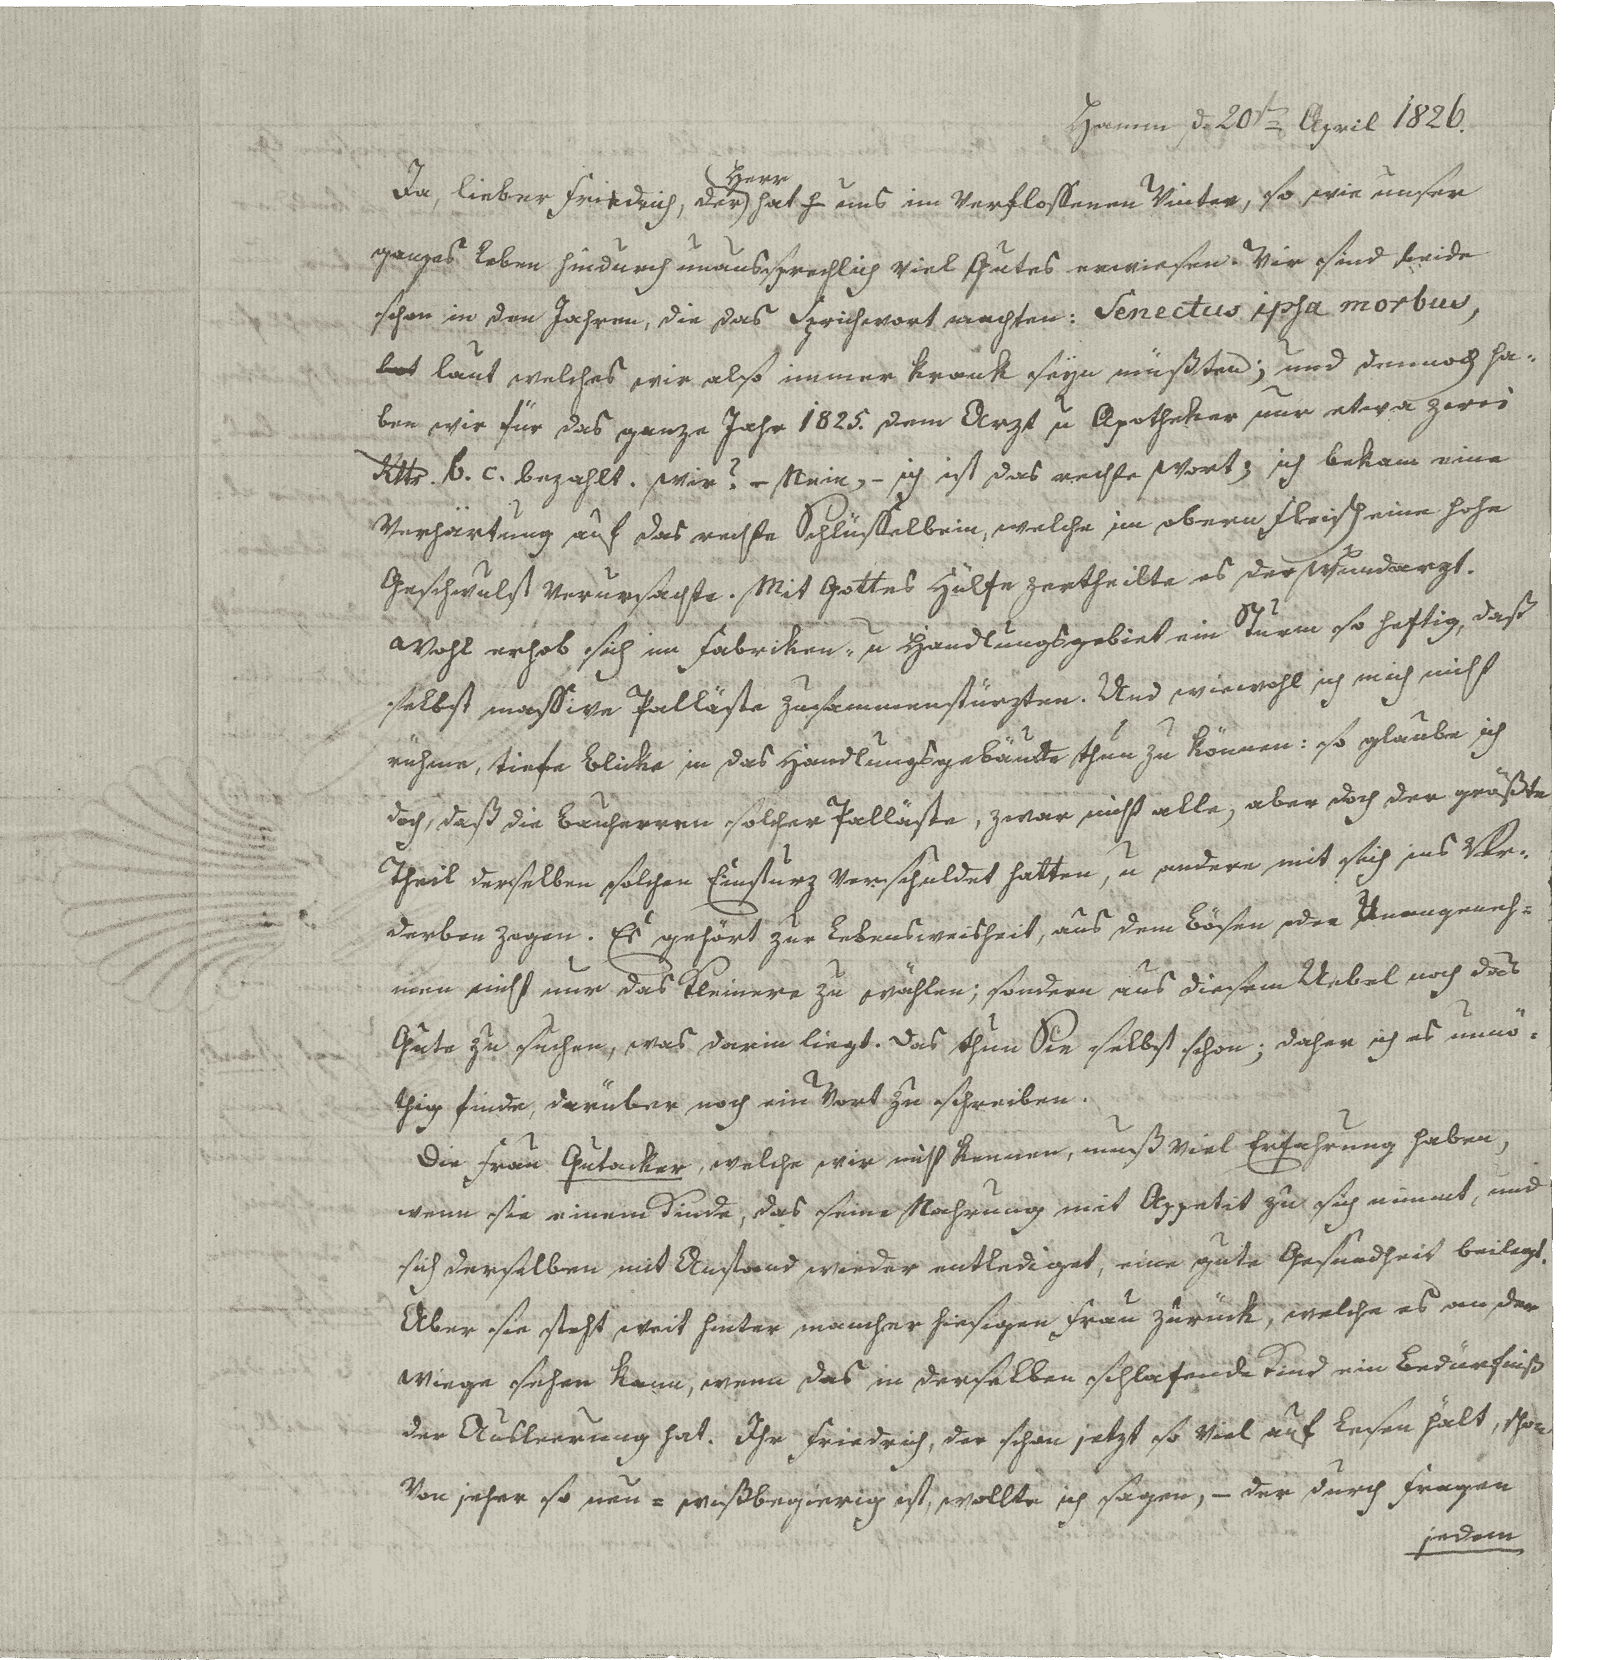 Hamm d. 20sten April 1826.
Ja, lieber Friedrich, der Herr hat uns im verflossenen Winter, so wie unser
ganzes Leben hindurch unaussprechlich viel Gutes erwiesen. Wir sind beide
schon in den Jahren, die das Sprichwort machten: Senectus ipsa morbus,
laut welches wir also immer krank seyn müßten; und dennoch ha-
ben wir für das ganze Jahr 1825. dem Arzt u Apotheker nur etwa zwei
Rtlr. b. c. bezahlt. Wir? – Nein, – ich ist das rechte Wort; ich bekam eine
Verhärtung auf das rechte Schlüsselbein, welche im obern Fleisch eine hohe
Geschwulst verursachte. Mit Gottes Hülfe zertheilte es der Wundarzt.
Wohl erhob sich im Fabriken- u Handlungsgebiet ein Sturm so heftig, daß
selbst massive Palläste zusammenstürzten. Und wiewohl ich mich nicht
rühme, tiefe Blicke in das Handlungsgebäude thun zu können: so glaube ich
doch, daß die Bauherren solcher Palläste, zwar nicht alle, aber doch der größte
Theil derselben solchen Einsturz verschuldet hatten, u andere mit sich ins Ver-
derben zogen. Es gehört zur Lebensweisheit, aus dem Bösen oder Unangeneh-
men nicht nur das Kleinere zu wählen; sondern aus diesem Uebel noch das
Gute zu suchen, was darin liegt. Das thun Sie selbst schon; daher ich es unnö-
thig finde, darüber noch ein Wort zu schreiben.
Die Frau Gutacker, welche wir nicht kennen, muß viel Erfahrung haben,
wenn sie einem Kinde, das seine Nahrung mit Appetit zu sich nimmt, und
sich derselben mit Anstand wieder entlediget, eine gute Gesundheit beilegt.
Aber sie steht weit hinter mancher hiesigen Frau zurück, welche es an der
Wiege sehen kann, wenn das in derselben schlafende Kind ein Bedürfniß
der Ausleerung hat. Ihr Friedrich, der schon jetzt so viel auf Lesen hält, schon
von jeher so neu- wißbegierig ist, wollte ich sagen, – der durch Fragen
jedem